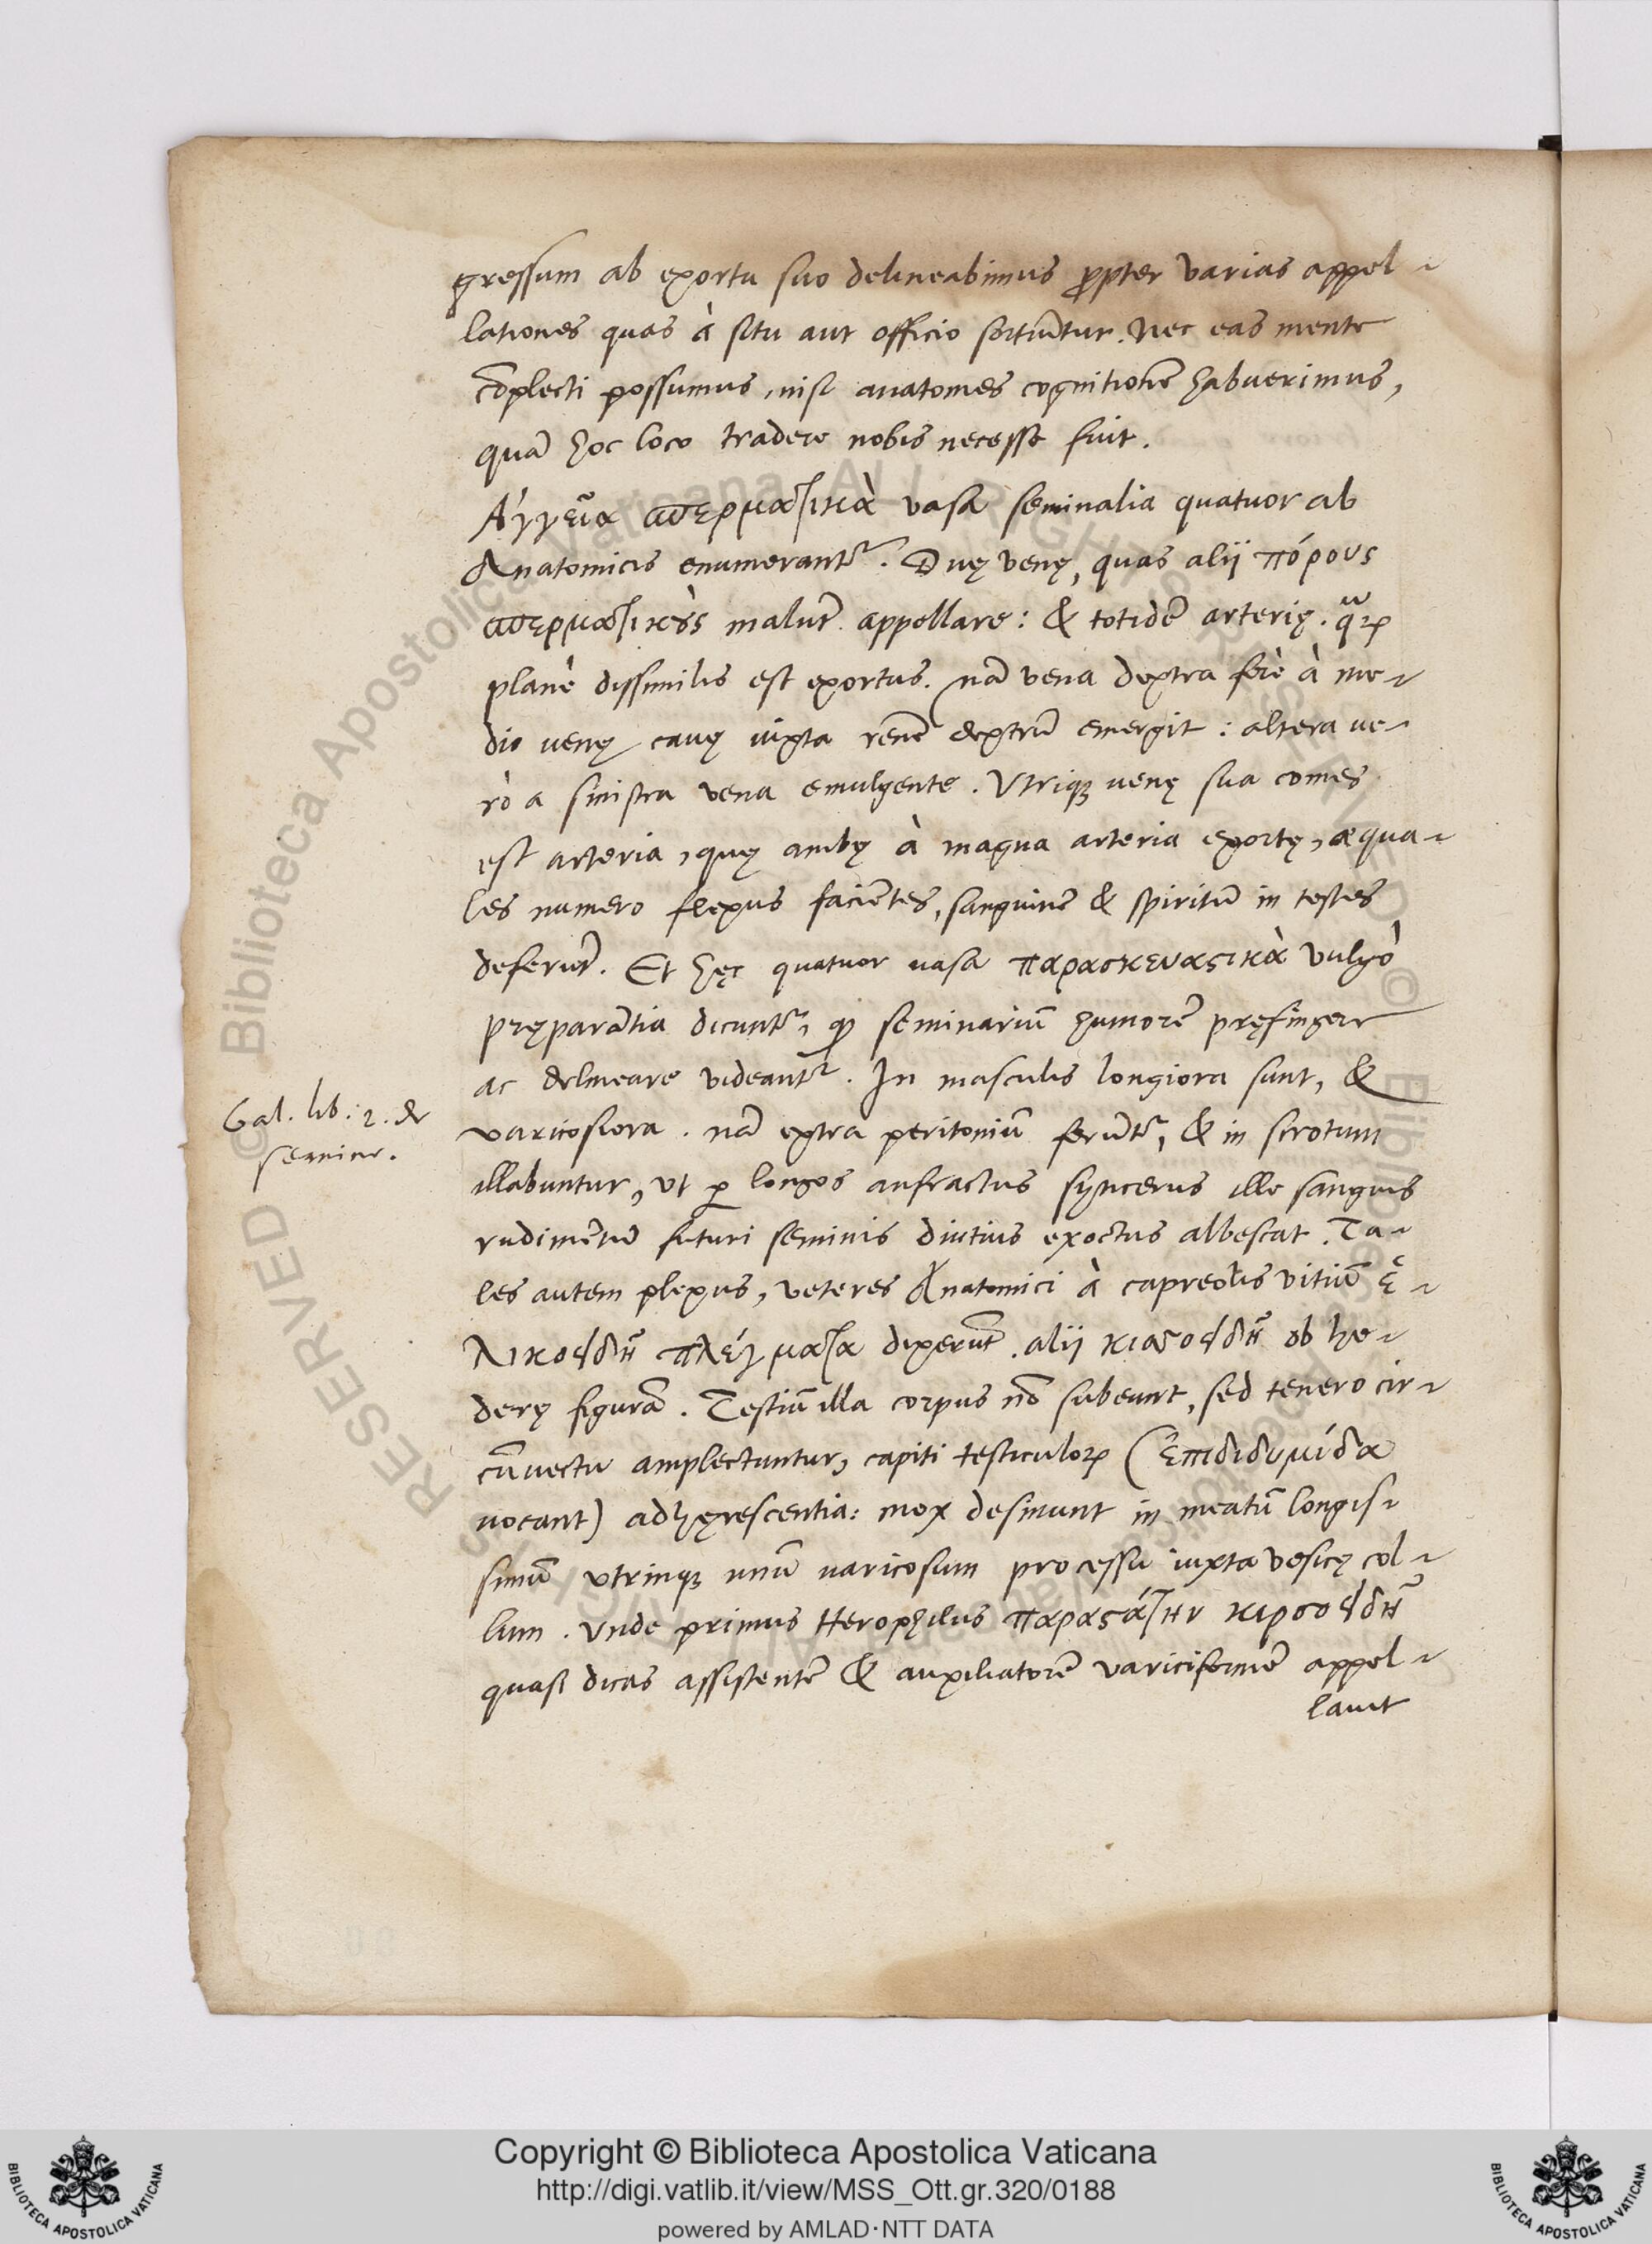 gressum ab exortu suo delineabimus ꝓpter varias appel-
lationes quas à situ aut officio sortiũtur. Nec eas mente
cõplecti possumus, nisi anatomes cognitionẽ habuerimus,
quã hoc loco tradere nobis necesse fuit.
Ἀγγεῖα σπερματικὰ vasa seminalia quatuor ab
Anatomicis enumerantr̃. Duę venę, quas alii πόρους
σπερματικοὺς malũt appellare: & totidẽ arterię. quaꝝ
planè dissimilis est exortus. nã vena dextra ferè à me-
dio uenę cauę iuxta renẽ dextrũ emergit: altera ve-
rò a sinistra vena emulgente. Vtriqꝫ uenę sua comes
est arteria, quę ambę à magna arteria exortę, æqua-
les numero flexus faciẽtes, sanguinẽ & spiritũ in testes
deferũt. Et hęc quatuor uasa παρασκευαϛικὰ vulgò
pręparãtia dicuntr̃, ꝙ seminariũ humorẽ pręfingere
ac delineare videantr̃. In masculis longiora sunt, &
varicosiora. nã extra peritoniũ ferũtr̃, & in scrotum
illabuntur, vt ꝑ longos anfractus syncerus ille sanguis
rudimẽtũ futuri seminis diutius exoctus albescat. Ta-
les autem plexus, veteres Anatomici à capreolis vitiũ ἑ-
λικοειδῆ πλέγματα dixerũt. alii κιϛοειδῆ ob he-
derę figurã. Testiũ illa corpus nõ subeunt, sed tenero cir-
cũuectu amplectuntur, capiti testiculoꝝ (ἐπιδιδυμίδα
uocant) adhęrescentia: mox desinunt in meatũ longis-
simũ vtrinqꝫ unũ uaricosum processu iuxta vesicę col-
lum. Vnde primus Herophilus παραϛάτην κιρσοειδῆ
quasi dicas assistentẽ & auxiliatorẽ variciformẽ appel-
lauit
Gal. lib: 2. de
semine.
Copyright © Biblioteca Apostolica Vaticana
http://digi.vatlib.it/view/MSS_Ott.gr.320/0188
powered by AMLAD·NTT DATA
BIBLIOTECA APOSTOLICA VATICANA
BIBLIOTECA APOSTOLICA VATICANA